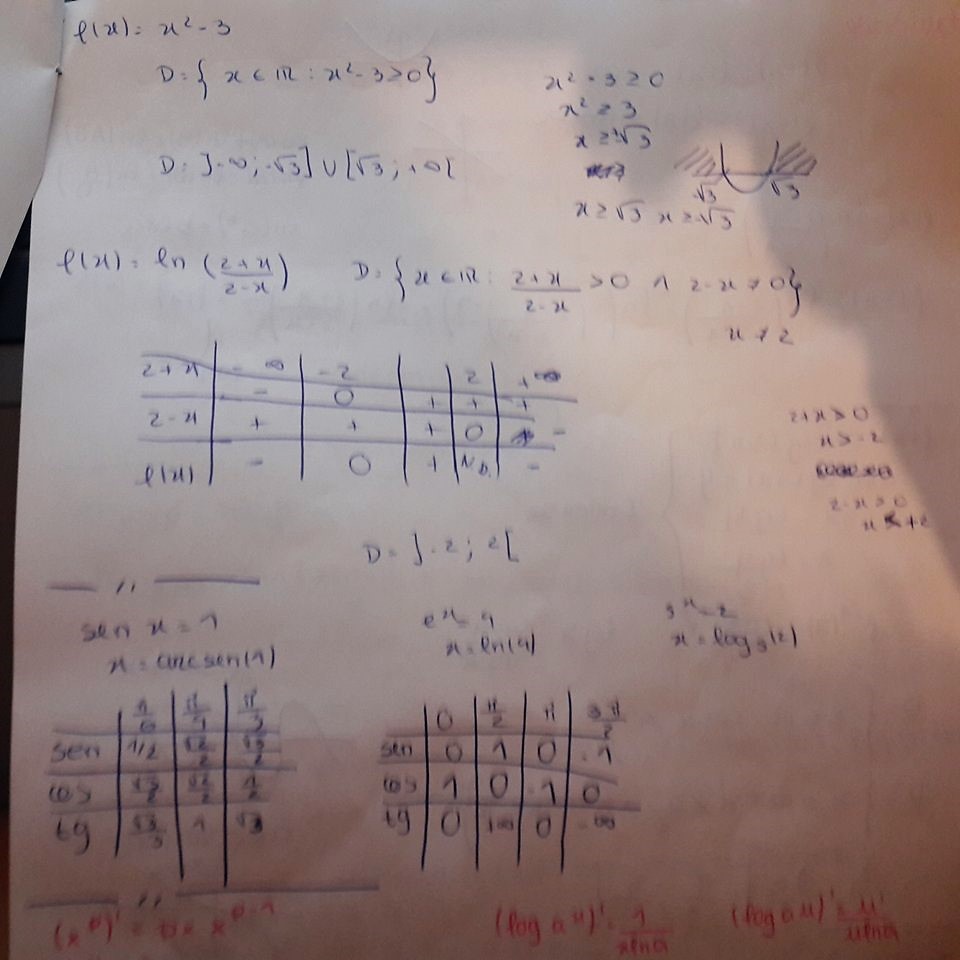 f(x) = x² - 3
D = { x ∈ ℝ : x² - 3 ≥ 0 }
x² - 3 ≥ 0
x² ≥ 3
x ≥ ±√3
D = ]-∞; -√3] ∪ [√3; +∞[
-√3 √3
x ≥ √3 x ≥ -√3
f(x) = ln (2+x / 2-x) D = { x ∈ ℝ : 2+x / 2-x > 0 ∧ 2-x ≠ 0 }
x ≠ 2
-∞ -2 2 +∞
2+x - 0 + + +
2-x + + + 0 -
f(x) - 0 + N.D. -
2+x > 0
x > -2
2-x > 0
x < +2
D = ]-2; 2[
— ,, —
sen x = 1 e^x = 4 3^x = 2
x = arcsen(1) x = ln(4) x = log₃(2)
π/6 π/4 π/3
sen 1/2 √2/2 √3/2
cos √3/2 √2/2 1/2
tg √3/3 1 √3
0 π/2 π 3π/2
sen 0 1 0 -1
cos 1 0 -1 0
tg 0 +∞ 0 -∞
— ,, —
(x^p)' = p x x^p-1 (log a x)' = 1 / x ln a (log a u)' = u' / u ln a